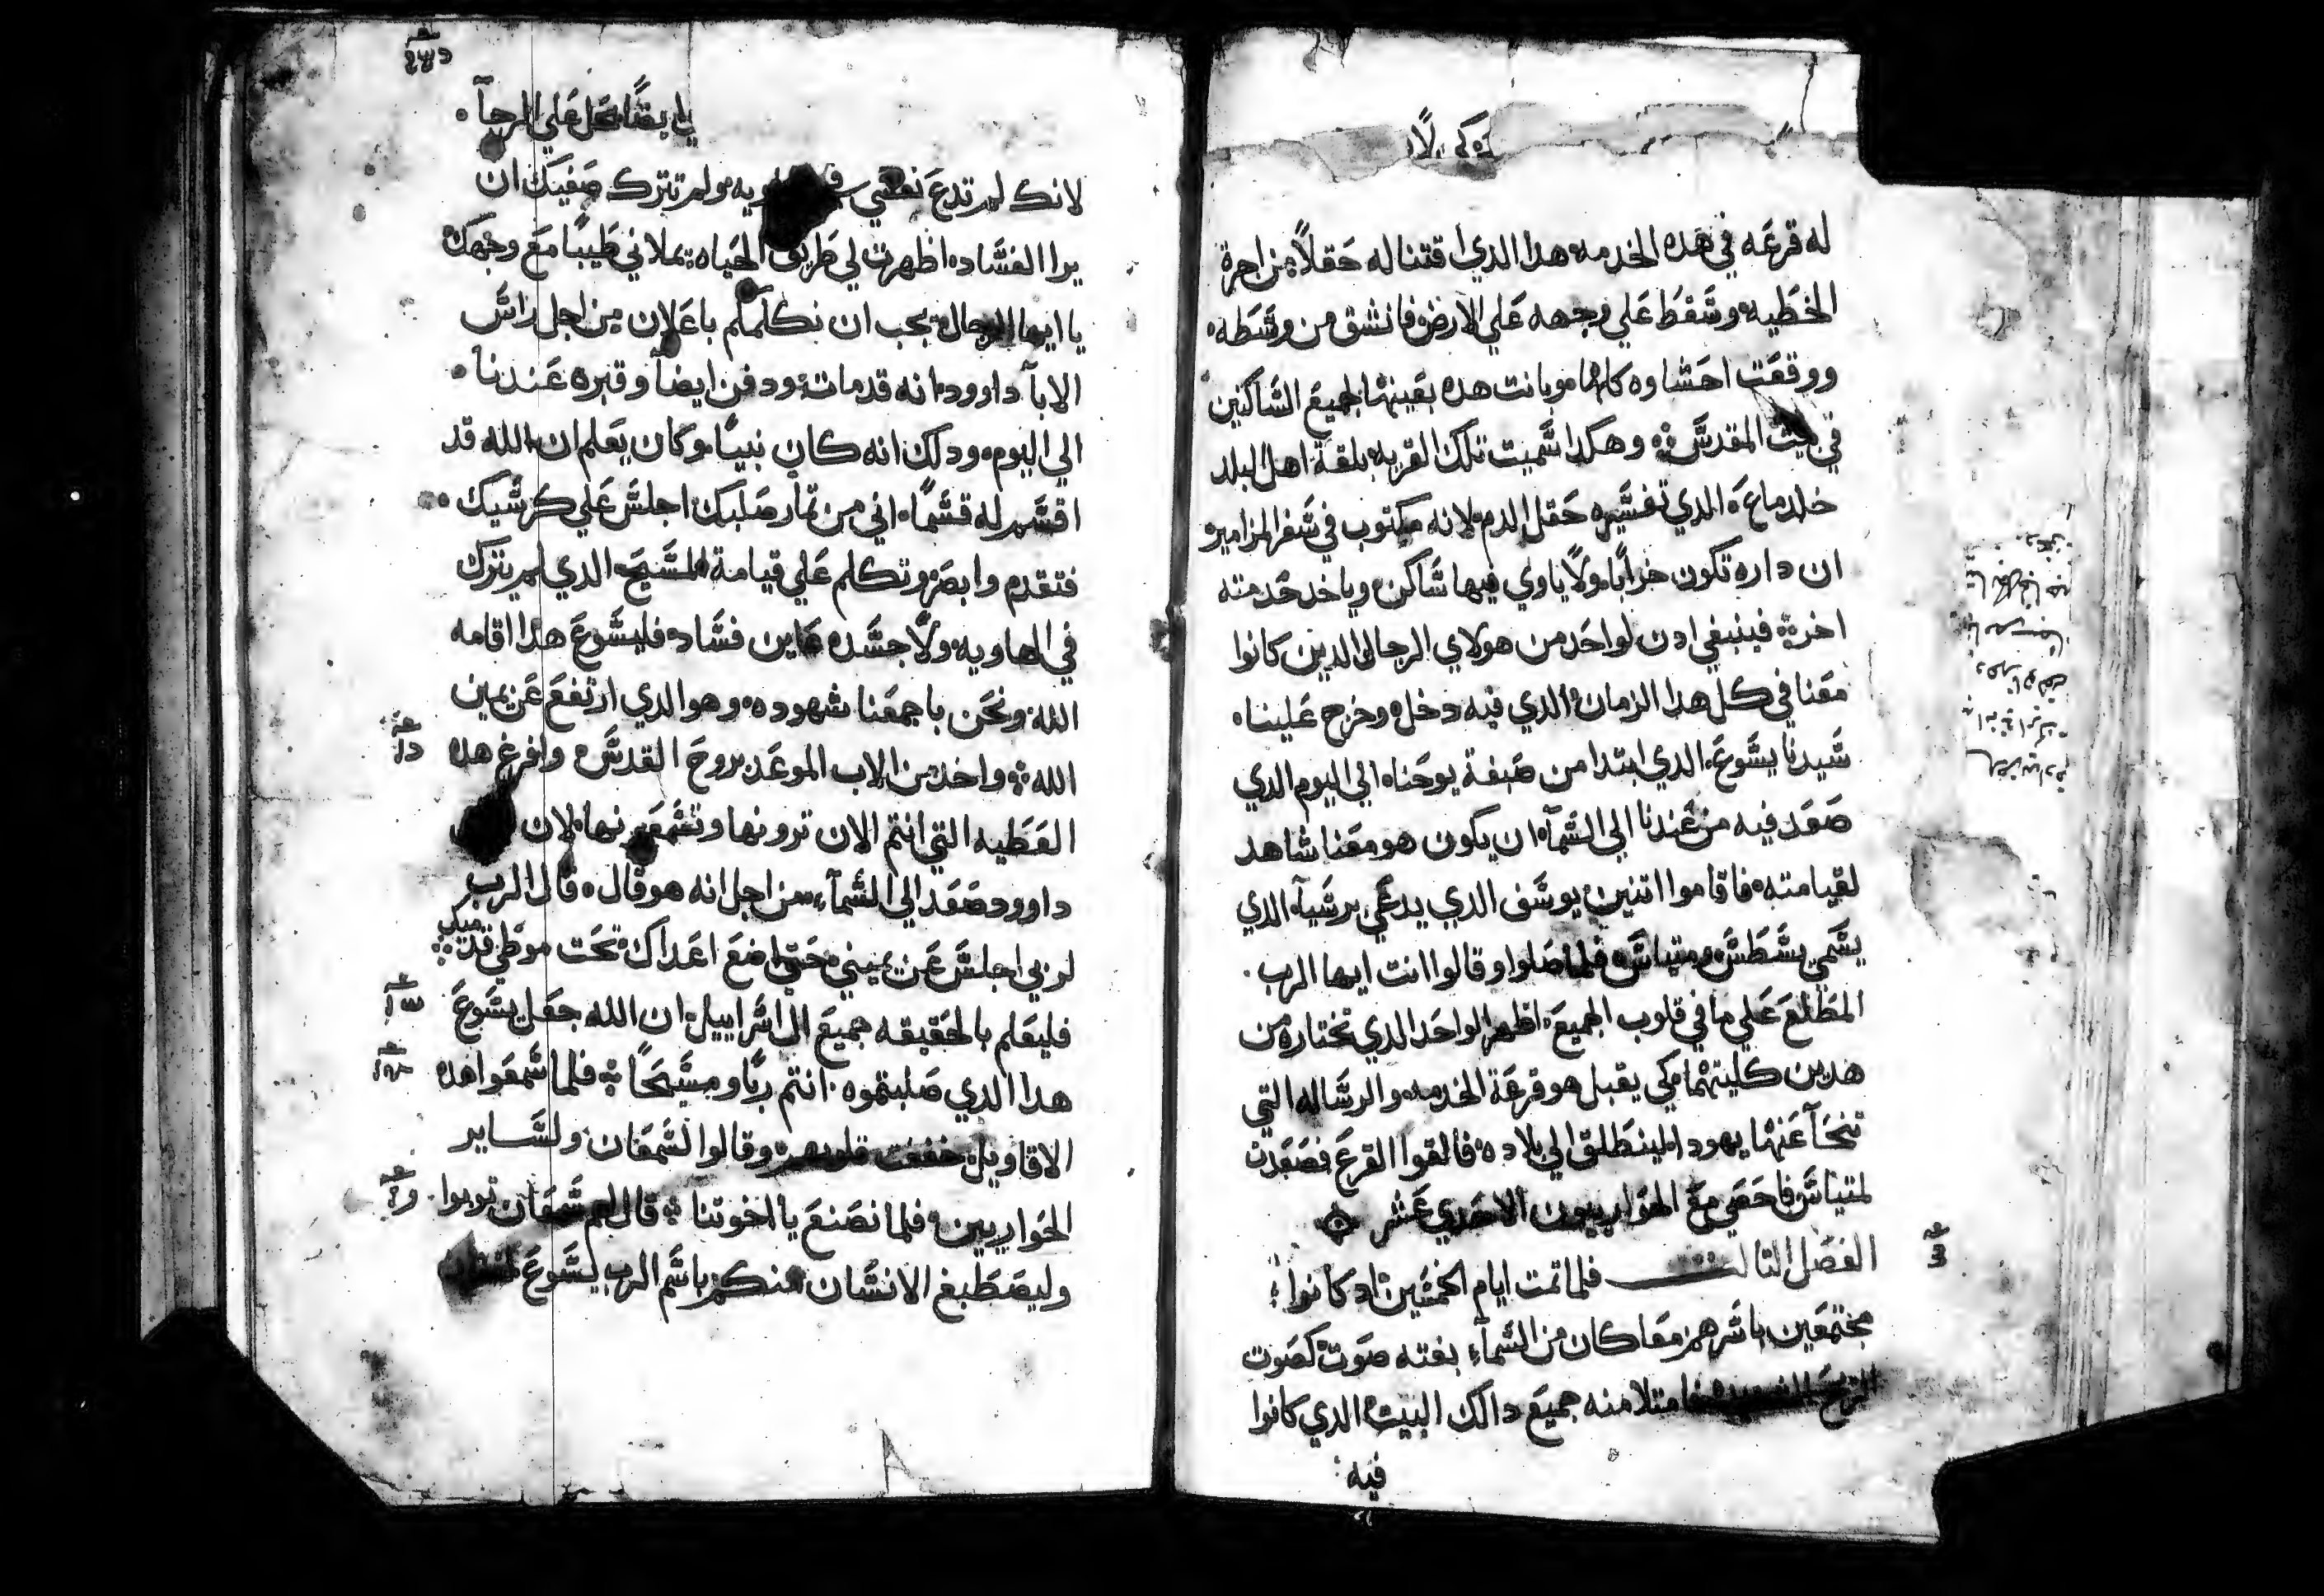 له قرعه في هده الخدمه هدا الدي اقتنا له حقلاً من اجرة
الخطيه وسقط علي وجهه علي الارض فانشق من وسطه
ووقعت احشاوه كلها وبانت هده بعينها لجميع الساكنين
في بيت المقدس وهكدا سميت تلك القريه بلغة اهل البلد
خلدماع الدي تفسيره حقل الدم لانه مكتوب في سفر المزامير
ان داره تكون خراباً ولا ياوي فيها ساكن وياخد خدمته
اخر فينبغي ادن لواحد من هولاي الرجال الدين كانوا
معنا في كل هدا الزمان الدي فيه دخل وخرج علينا
سيدنا يسوع الدي ابتدا من صبغة يوحنا الي اليوم الدي
صعد فيه من عندنا الي السمآ ان يكون هو معنا شاهد
لقيامته فاقاموا اتنين يوسف الدي يدعي برسيآ الدي
يسمي يسطس ومتياس فلما صلوا وقالوا انت ايها الرب
المطلع علي ما في قلوب الجميع اظهر الواحد الدي تختاره من
هدين كليتهما كي يقبل هو قرعة الخدمه والرساله التي
تنحآ عنها يهودا لينطلق الي بلاده فالقوا القرع فصعدت
لمتياس فاحصي مع الحواريون الاحدي عشر
الفصل التالت فلما تمت ايام الخمسين اد كانوا
مجتمعين باسرهم معا كان من السمآء بغته صوت كصوت
الريح الشديده فامتلا منه جميع دالك البيت الدي كانوا
فيه
علي الرجآ
لانك لم تدع نفسي ولم تترك صفيك ان
يرا الفساد اظهرت لي طريق الحياه تملاني طيباً مع وجهك
يا ايها الرجال يجب ان نكلمكم باعلان من اجل راس
الابآ داوود انه قد مات ودفن ايضاً وقبره عندنا
الي اليوم ودلك انه كان نبياً وكان يعلم ان الله قد
اقسم له قسماً اني من تمار صلبك اجلس علي كرسيك
فتقدم وابصر وتكلم علي قيامة المسيح الدي لم يترك
في الهاويه ولا جسده عاين فساد فليسوع هدا اقامه
الله ونحن باجمعنا شهوده وهو الدي ارتفع عن يمين
الله واخد من الاب الموعد بروح القدس وافرغ هده
العطيه التي انتم الان ترونها وتسمعونها لان
داوود صعد الي السمآء من اجل انه هو قال قال الرب
لربي اجلس عن يميني حتي اضع اعداك تحت موطي قدميك
فليعلم بالحقيقه جميع ال اسراييل ان الله جعل يسوع
هدا الدي صلبتموه انتم رباً ومسيحاً فلما سمعوا هده
الاقاويل خفقت قلوبهم وقالوا لسمعان ولساير
الحواريين فلما نصنع يا اخوتنا قال لهم سمعان توبوا
وليصطبغ الانسان منكم باسم الرب يسوع